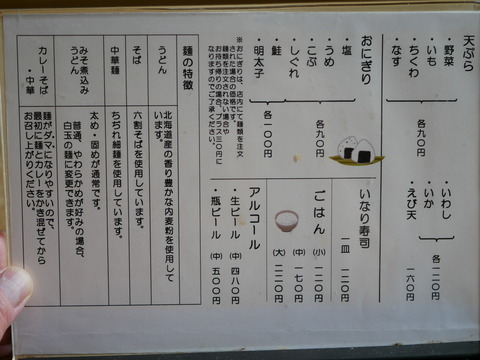 天ぷら
・野菜
・いも
・ちくわ
・なす
各九〇円
・いわし
・いか
各一二〇円
・えび天 一六〇円
おにぎり
・塩
・うめ
・こぶ
・しぐれ
各九〇円
・鮭
・明太子
各一〇〇円
※おにぎりは、店内にて麺類を注文
された場合の価格です。
麺類を注文されない場合や
お持ち帰りの場合、プラス三〇円に
なりますのでご了承ください。
いなり寿司
一皿 一二〇円
ごはん
(小) 一二〇円
(中) 一七〇円
(大) 二二〇円
アルコール
・生ビール (中) 四八〇円
・瓶ビール (中) 五〇〇円
麺の特徴
うどん
北海道産の香り豊かな内麦粉を使用して
います。
そば
六割そばを使用しています。
中華麺
ちぢれ細麺を使用しています。
みそ煮込み
うどん
太め・固めが通常です。
普通、やわらかめが好みの場合、
白玉の麺に変更できます。
カレーそば
・中華
麺がダマになりやすいので、
最初に麺とカレーをかき混ぜてから
お召し上がりください。